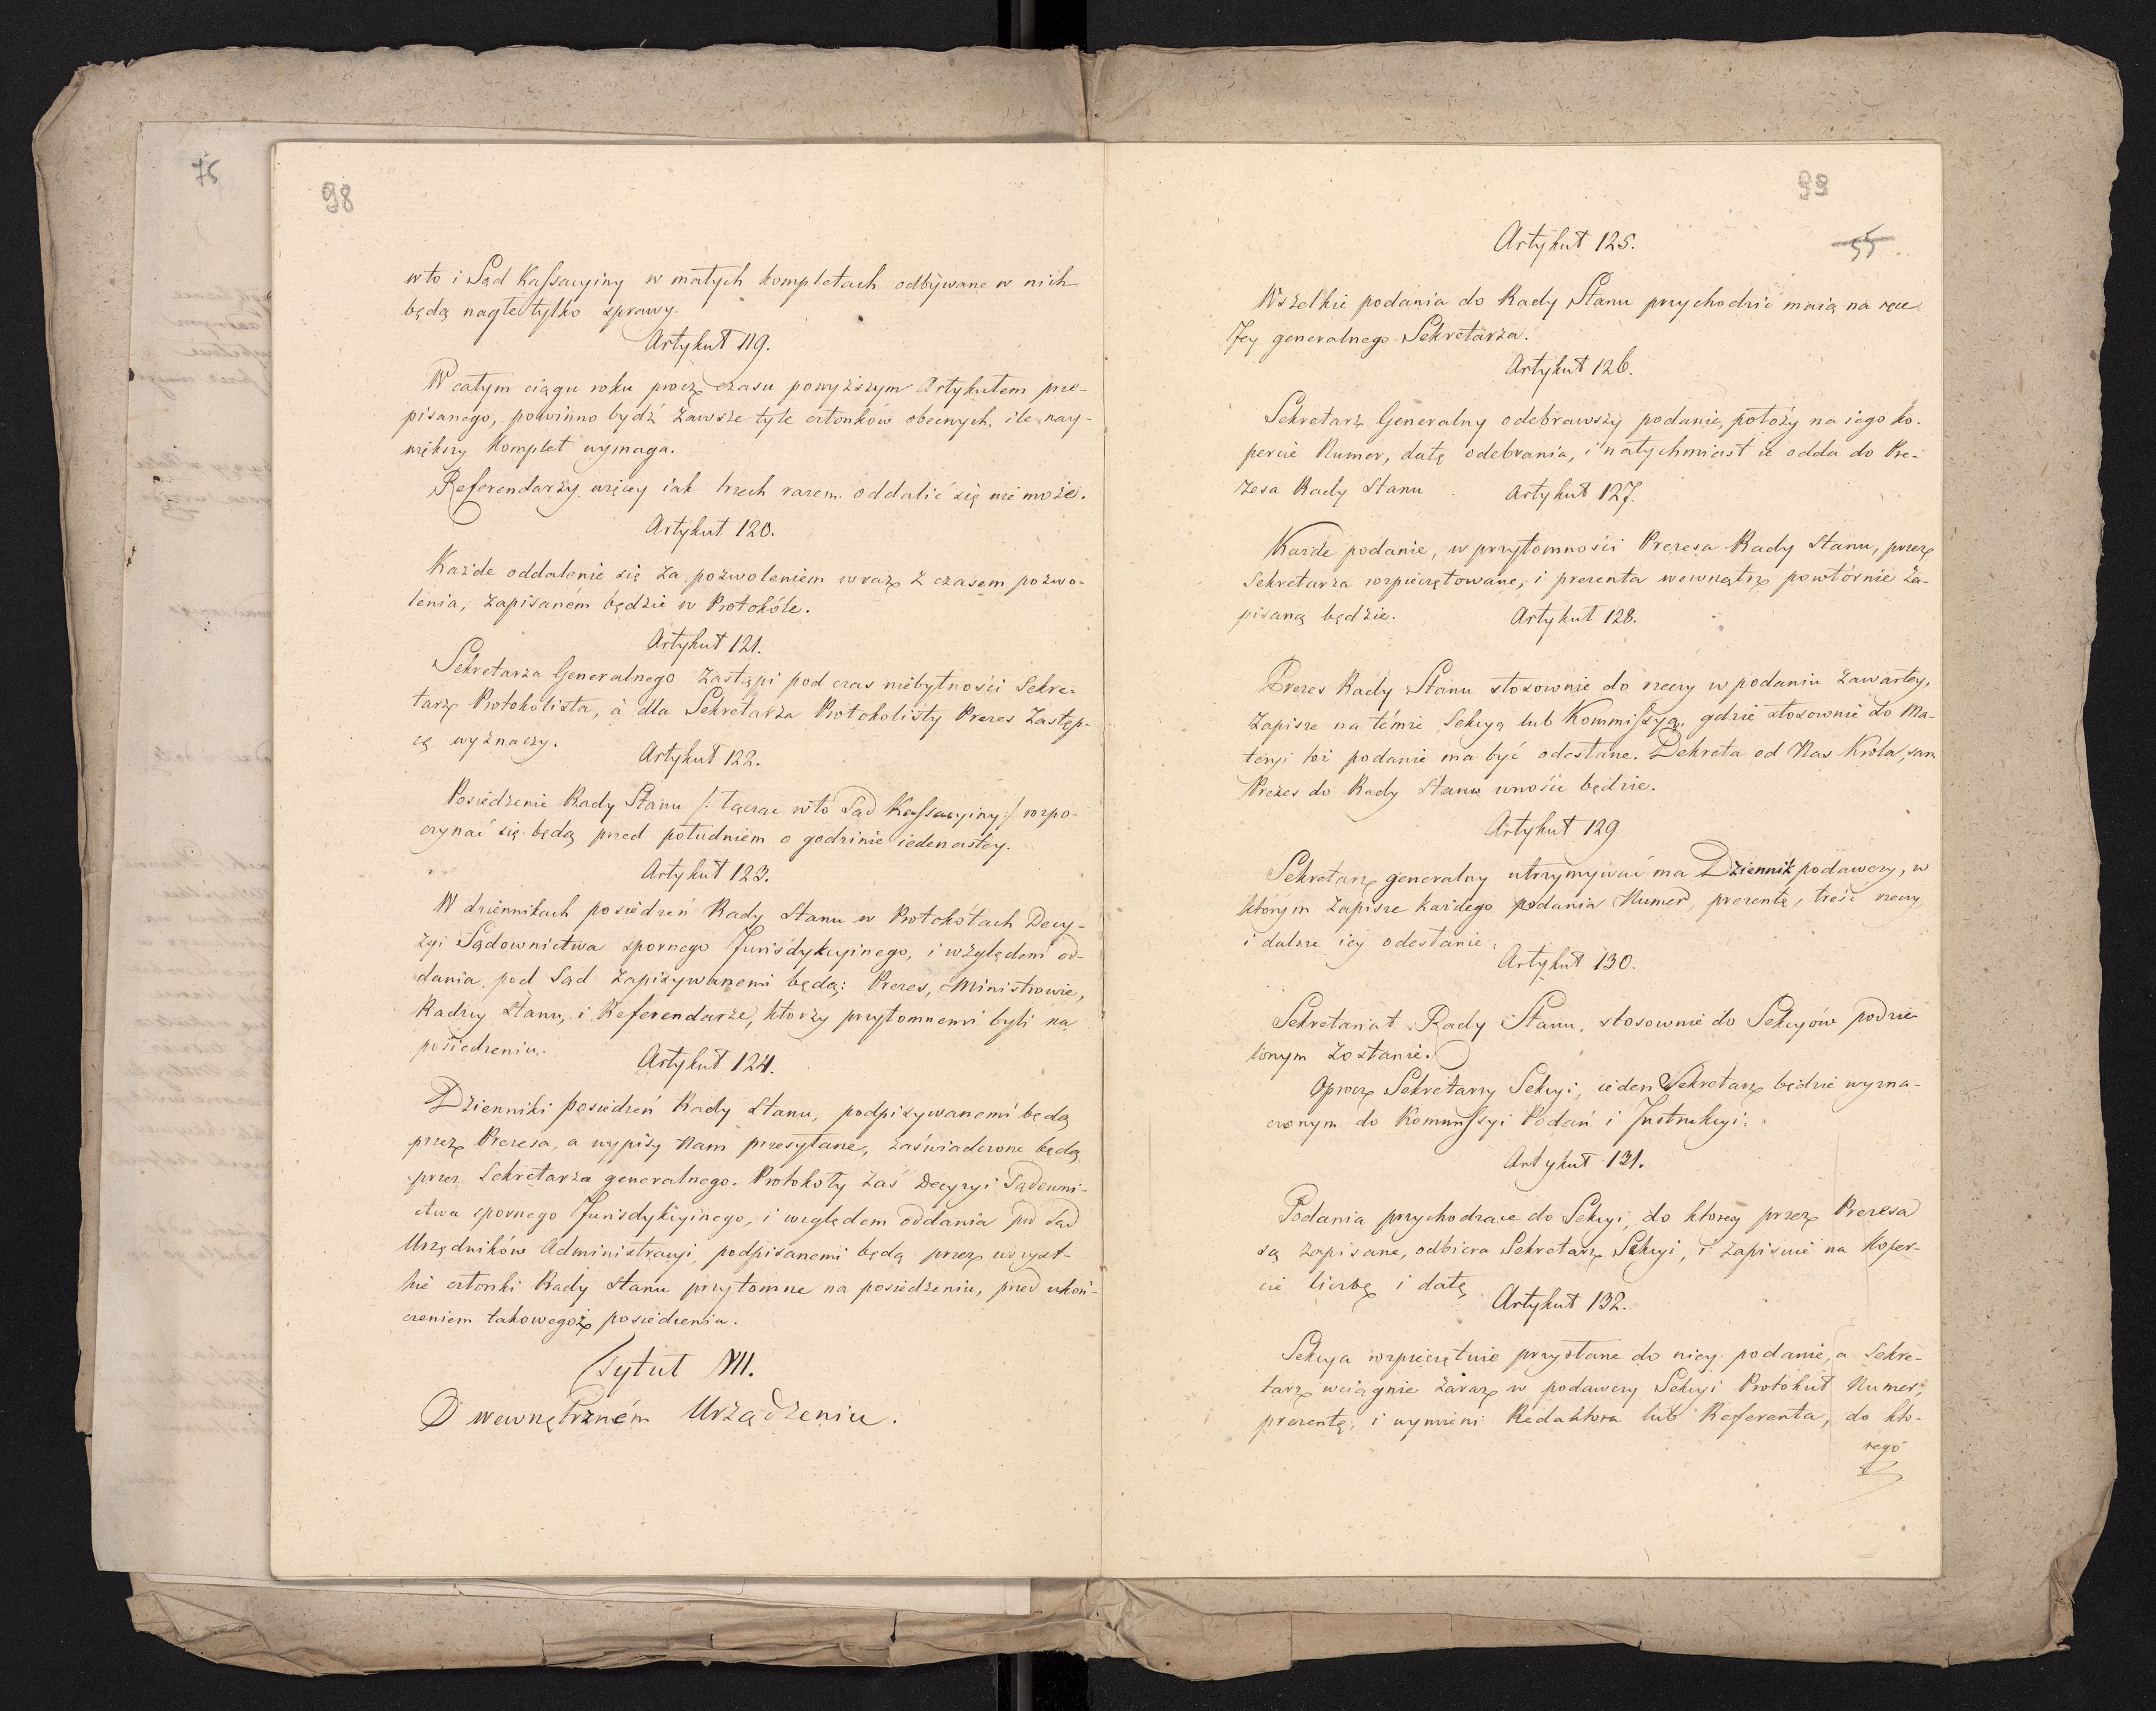 76
98
w to i Sąd Kassacyiny w małych kompletach odbywane w nich
będą nagłe tylko sprawy.
Artykuł 119.
W całym ciągu roku procz czasu powyższym Artykułem prze-
pisanego, powinno bydź zawsze tyle członków obecnych, ile nay-
większy Komplet wymaga.
Referendarzy więcey iak trzech razem oddalić się nie może.
Artykuł 120.
Każde oddalenie się za pozwoleniem wraz z czasem pozwo-
lenia, zapisaném będzie w Protokóle.
Artykuł 121.
Sekretarza Generalnego zastąpi pod czas niebytności Sekre-
tarz Protokolista, a dla Sekretarza Protokolisty Prezes Zastęp-
cę wyznaczy.
Artykuł 122.
Posiedzenie Rady Stanu /: łącząc w to Sąd Kassacyiny :/ rozpo-
czynać się będą przed południem o godzinie iedenastey.
Artykuł 123.
W dziennikach posiedzeń Rady Stanu w Protokółach Decy-
zyi Sądownictwa spornego Jurisdykcyinego, i względem od-
dania pod Sąd zapisywanemi będą: Prezes, Ministrowie,
Radzcy Stanu, i Referendarze, którzy przytomnemi byli na
posiedzeniu.
Artykuł 124.
Dzienniki posiedzeń Rady Stanu, podpisywanemi będą
przez Prezesa, a wypisy Nam przesyłane, zaświadczone będą
przez Sekretarza generalnego. Protokoły zaś Decyzyi Sądowni-
ctwa spornego Jurisdykcyinego, i względem oddania pod Sąd
Urzędników Administracyi, podpisanemi będą przez wszyst-
kie członki Rady Stanu przytomne na posiedzeniu, przed ukoń-
czeniem takowegoż posiedzenia.
Tytuł VII.
O wewnętrzném Urządzeniu.
99
55
Artykuł 125.
Wszelkie podania do Rady Stanu przychodzić maią na ręce
Jey generalnego Sekretarza.
Artykuł 126.
Sekretarz Generalny odebrawszy podanie, położy na iego ko-
percie Numer, datę odebrania, i natychmiast ie odda do Pre-
zesa Rady Stanu
Artykuł 127.
Każde podanie, w przytomności Prezesa Rady Stanu, przez
Sekretarza rozpieczętowane, i prezenta wewnątrz powtórnie za-
pisaną będzie.
Artykuł 128.
Prezes Rady Stanu stosownie do rzeczy w podaniu zawartey,
zapisze na témże Sekcyą lub Kommissyą, gdzie stosownie do Ma-
teryi toż podanie ma być odesłane. Dekreta od Nas Króla, sam
Prezes do Rady Stanu wnosić będzie.
Artykuł 129
Sekretarz generalny utrzymywać ma Dziennik podawczy, w
którym zapisze każdego podania Numer, prezentę, treść rzeczy,
i dalsze iey odesłanie.
Artykuł 130.
Sekretariat Rady Stanu, stosownie do Sekcyów podzie-
lonym zostanie.
Oprocz Sekretarzy Sekcyi, ieden Sekretarz będzie wyzna-
czonym do Kommissyi Podań i Instrukcyi.
Artykuł 131.
Podania przychodzące do Sekcyi, do którey przez Prezesa
są zapisane, odbiera Sekretarz Sekcyi, i zapisuie na Koper-
cie liczbę i datę
Artykuł 132.
Sekcya rozpieczętuie przysłane do niey podanie, a Sekre-
tarz wciągnie zaraz w podawczy Sekcyi Protokuł Numer,
prezentę, i wymieni Redaktora lub Referenta, do któ-
rego